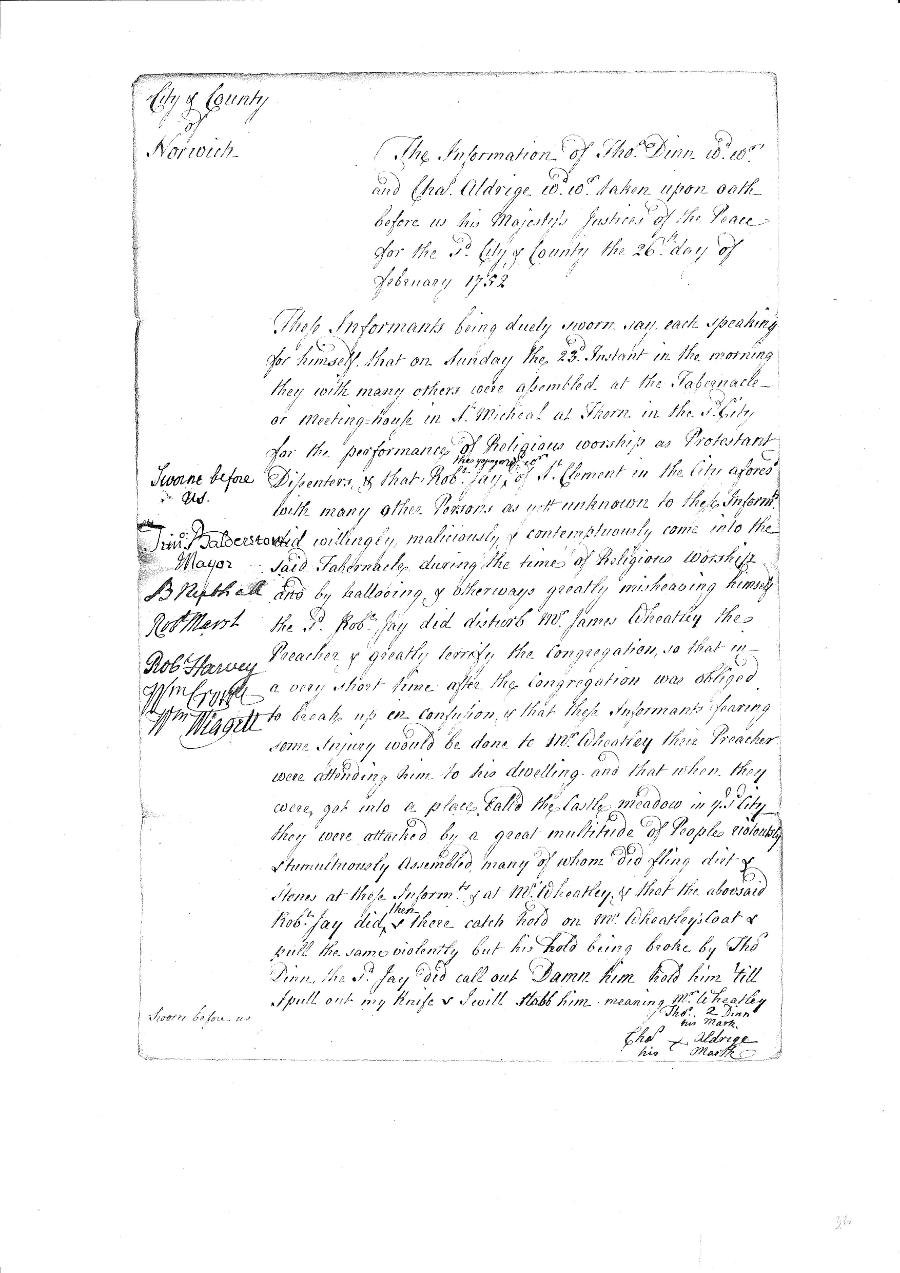 City & County
of
Norwich
The Information of Tho.s Dinn w.d w.r
and Cha.s Aldrige w.d w.r taken upon oath
before us his Majesty's Justices of the Peace
for the s.d City & County the 26.th day of
february 1752
These Informants being duely sworn say each speaking
for himself that on Sunday the 23.d Instant in the morning
they with many others were assembled at the Tabernacle
or Meeting-house in S.t Micheal at Thorn in the s.d City
for the performance of Religious worship as Protestant
Dissenters, & that Rob.t Jay of S.t Clement in the City afores.d
with many other Persons as yett unknown to these Inform.ts
did willingly, maliciously & contemptuously come into the
said Tabernacle during the time of Religious Worship
and by hallooing & otherways greatly misbeaving himself
the s.d Rob.t Jay did disturb Mr. James Wheatley the
Preacher & greatly terrify the Congregation, so that in
a very short time after the Congregation was obliged
to break up en confusion, & that these Informants fearing
some Injury would be done to Mr. Wheatley their Preacher
were attending him to his dwelling and that when they
were got into a place call'd the Castle meadow in y.e s.d City
they were attacked by a great multitude of People riotously
& tumultuously Assembled, many of whom did fling dirt &
Stones at these Inform.ts & at Mr. Wheatley, & that the abovsaid
Rob.t Jay did then & there catch hold on Mr. Wheatley's Coat &
pull the same violently but his hold being broke by Tho.s
Dinn, the s.d Jay did call out Damn him hold him 'till
I pull out my Knife & I will stabb him meaning Mr. Wheatley
Tho.s 2 Dinn
his Mark
Cha.s × Aldrige
his Mark
Sworne before
us.
Tim.o Balderston
Mayor
B Nuthall
Rob.t Marsh
Rob.t Harvey
W.m Crowe
W.m Wiggett
Sworn before us
36